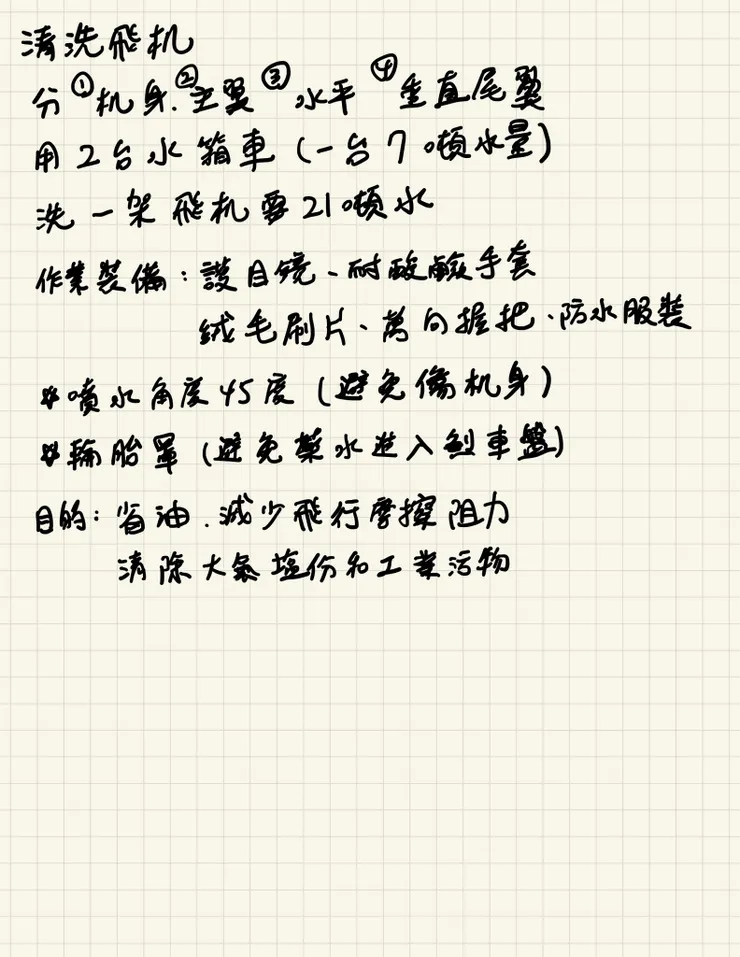 清洗飛机
分①机身.②主翼③水平④垂直尾翼
用2台水箱車(一台7噸水量)
洗一架飛机要21噸水
作業裝備:護目鏡、耐酸鹼手套
絨毛刷片、萬向握把、防水服裝
*噴水角度45度(避免傷机身)
*輪胎罩(避免藥水進入剎車盤)
目的:省油.減少飛行摩擦阻力
清除大氣塩份和工業污物